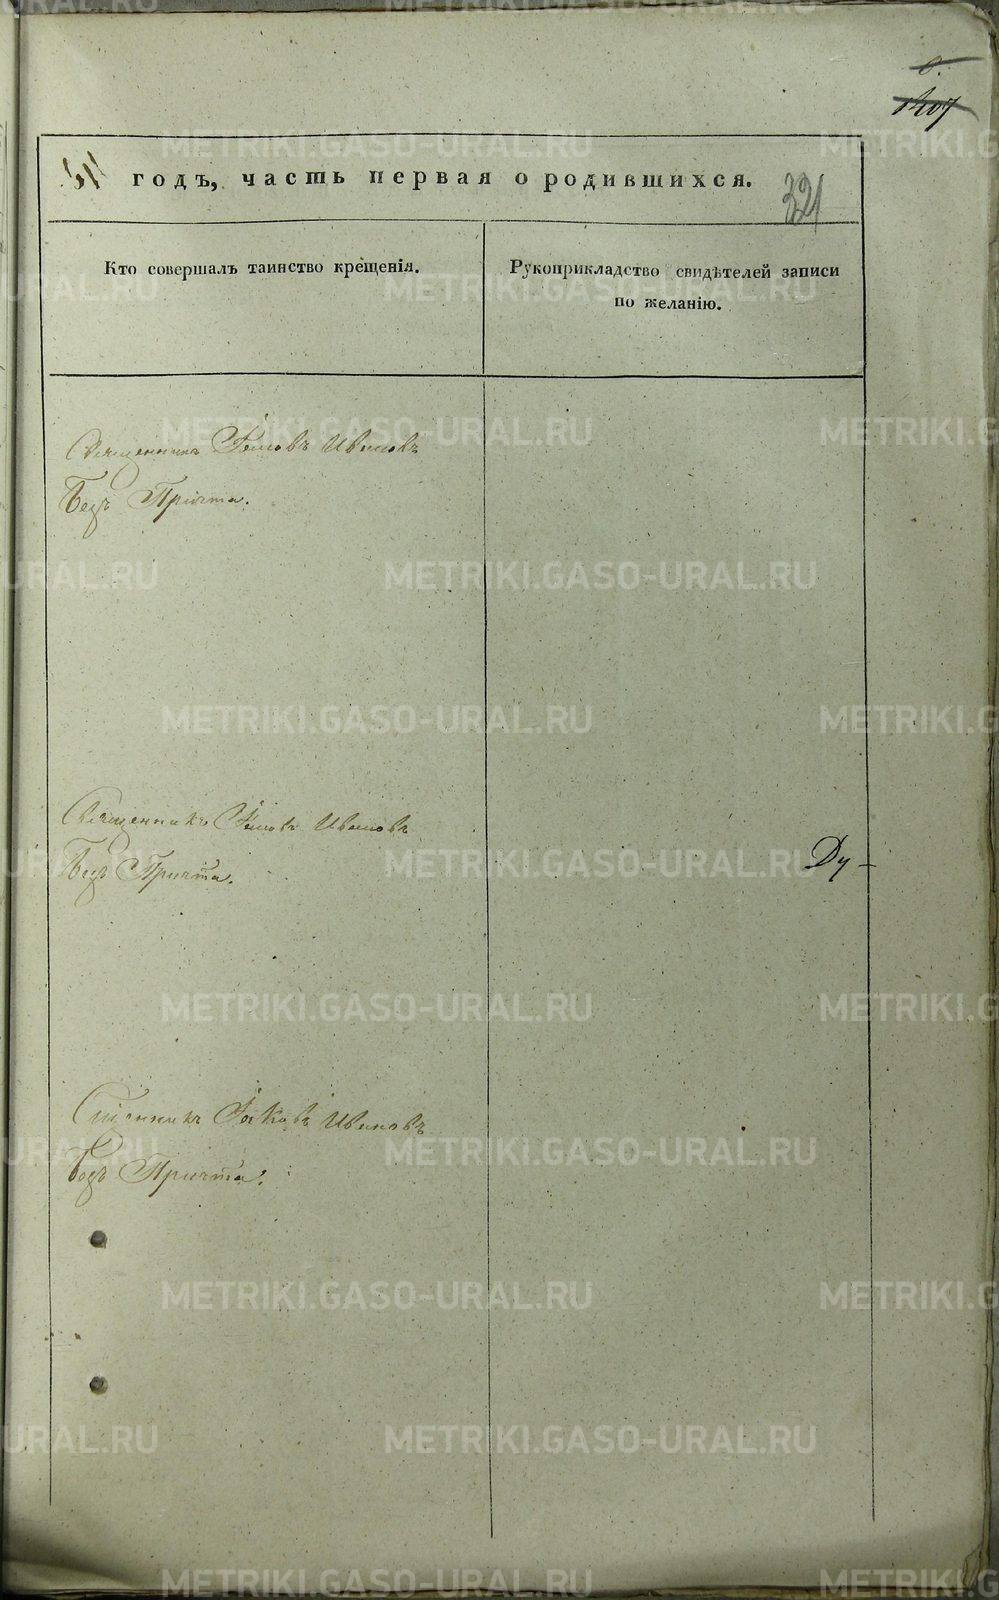 1407
321
годъ, часть первая о родившихся.
Кто совершалъ таинство крещенія.
Рукоприкладство свидѣтелей записи
по желанію.
Священникъ Іаковъ Ивановъ
Безъ Причта.
Священникъ Іаковъ Ивановъ
Безъ Причта.
Ду-
Сщенникъ Іаковъ Ивановъ
Безъ Причта.
METRIKI.GASO-URAL.RU